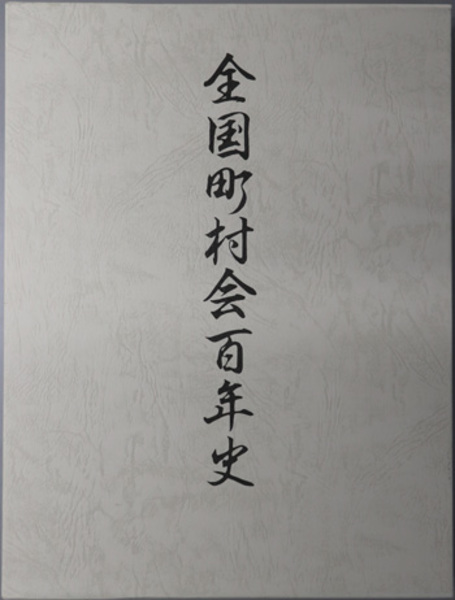 全国町村会百年史